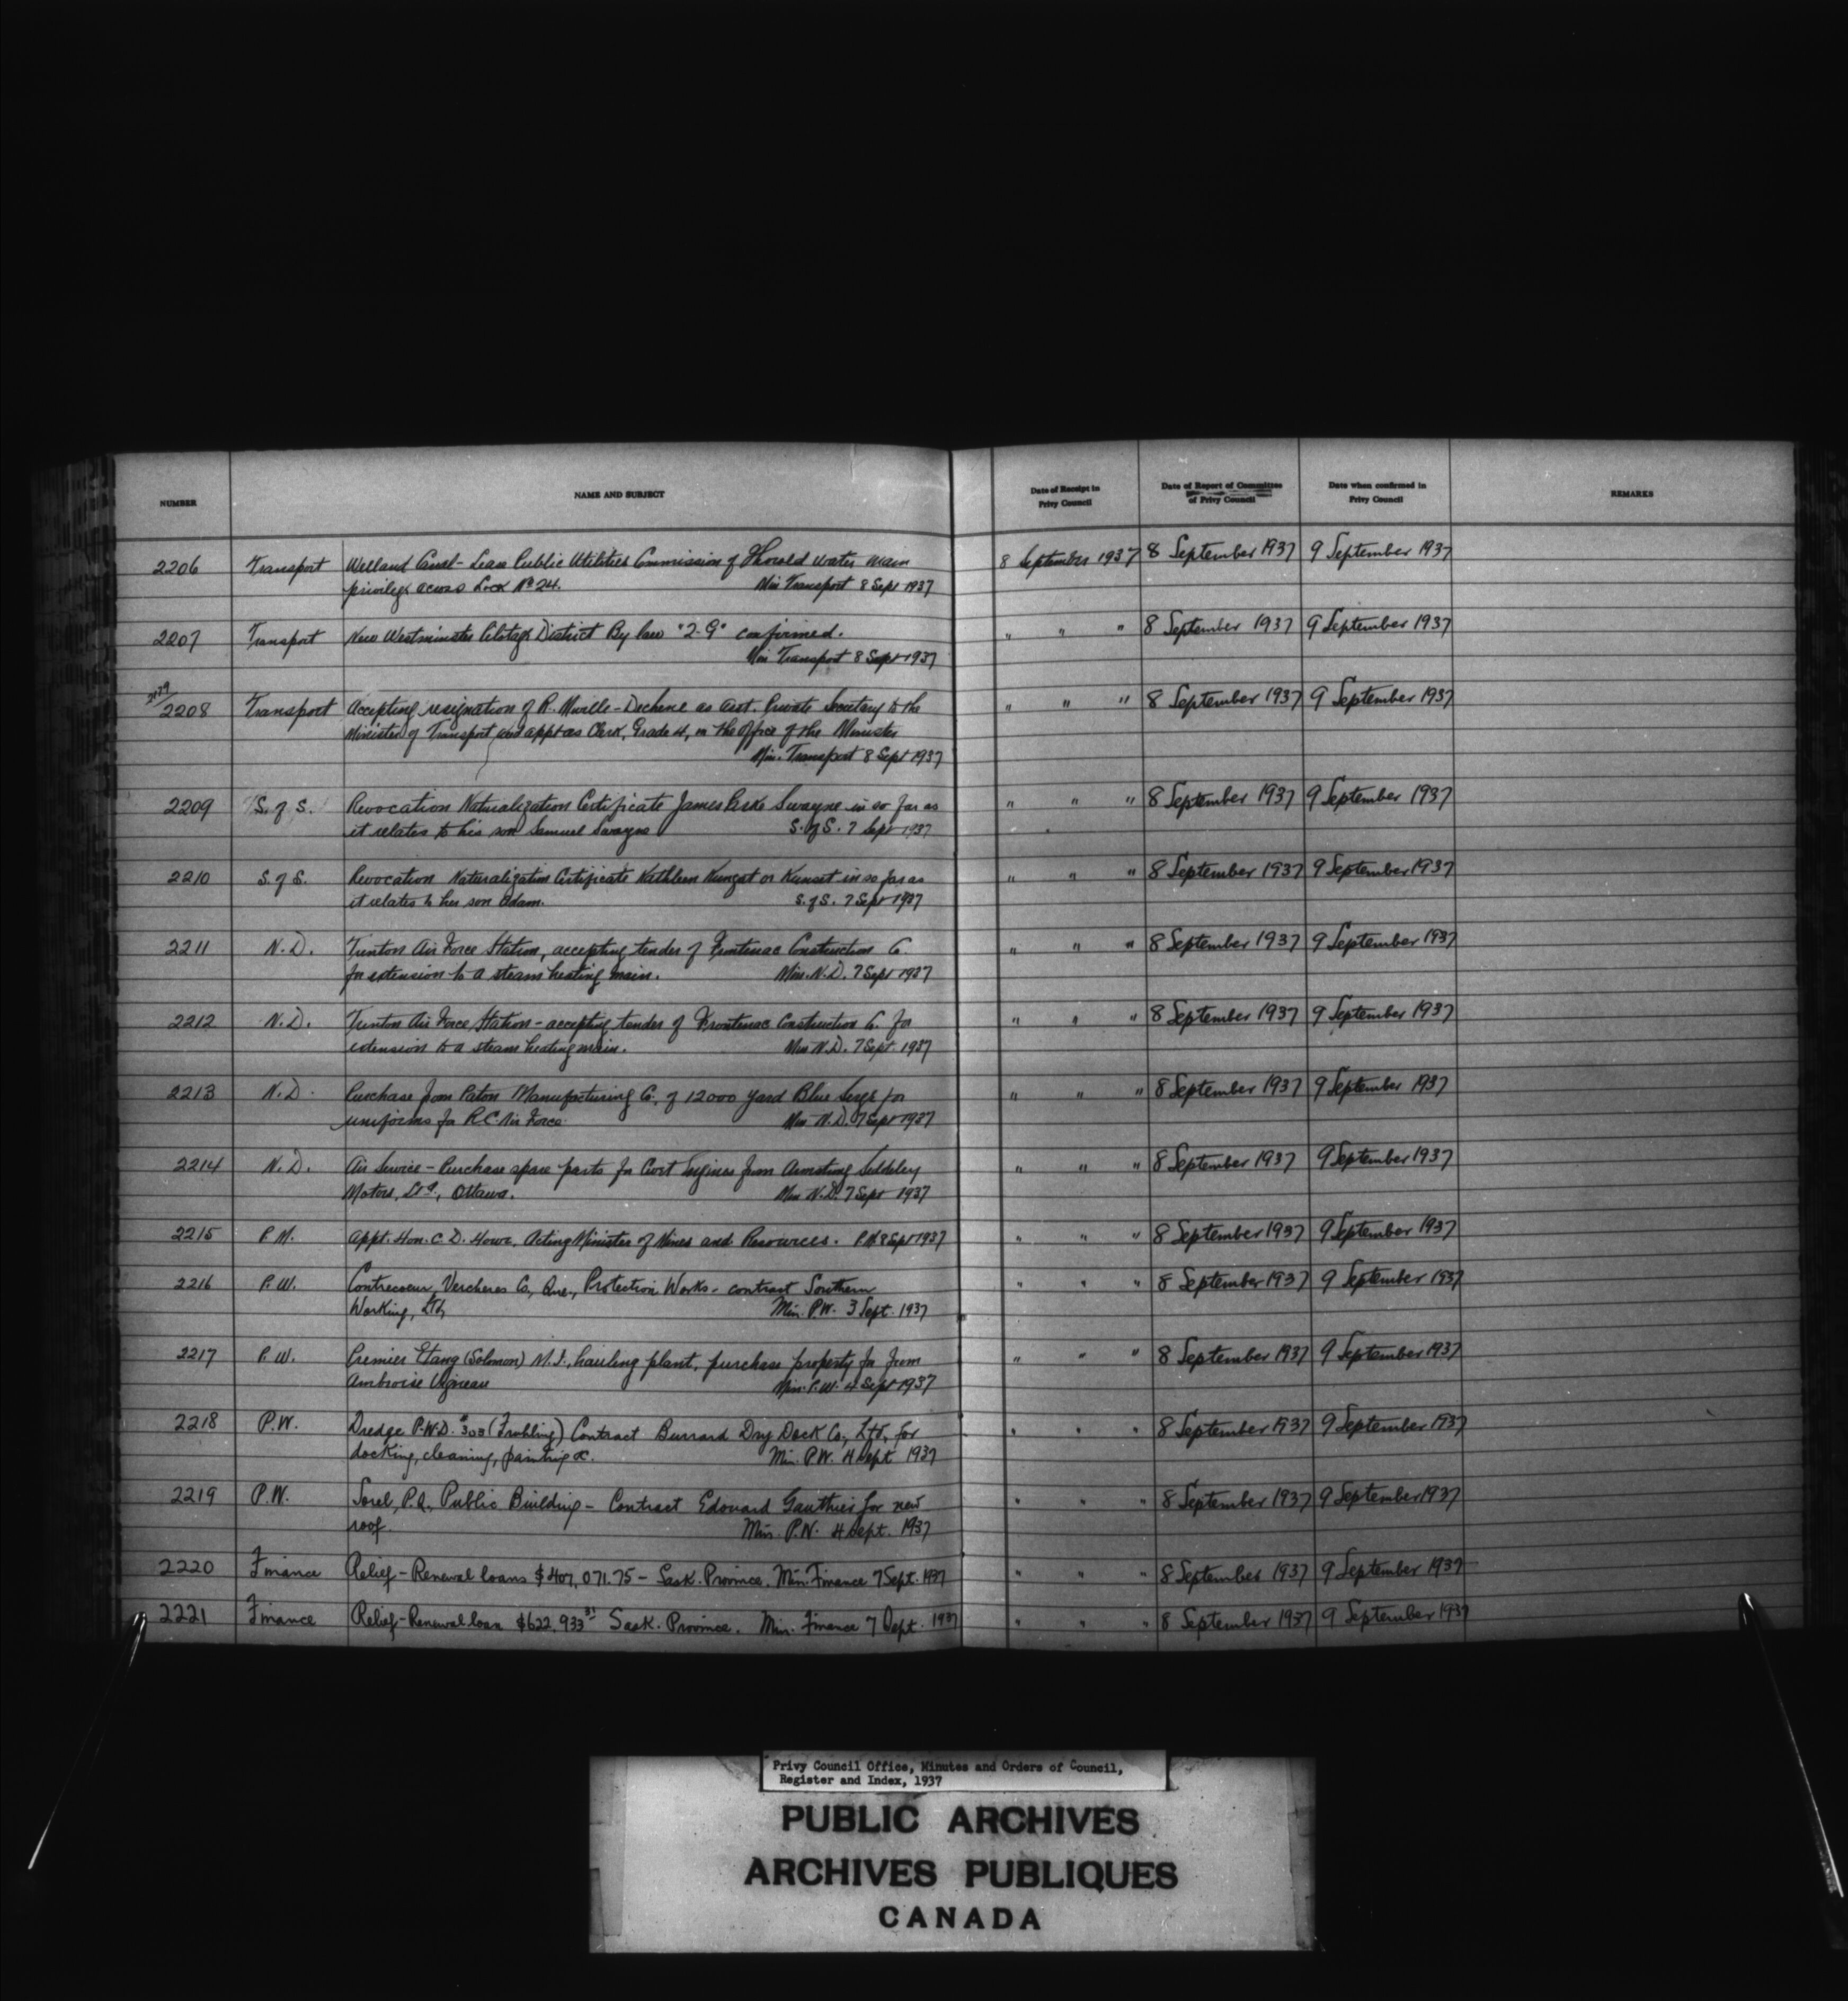 NUMBER NAME AND SUBJECT Date of Receipt in Privy Council Date of Report of Committee of Privy Council Date when confirmed in Privy Council REMARKS
2206 Transport Welland Canal - Lease Public Utilities Commission of Thorold water main 8 September 1937 8 September 1937 9 September 1937
privilege across Lock No 24. Min Transport 8 Sept 1937
2207 Transport New Westminster Pilotage District By law "2-G" confirmed. " " " 8 September 1937 9 September 1937
Min Transport 8 Sept 1937
2208 Transport Accepting resignation of R. Miville-Dechene as asst. Private Secretary to the " " " 8 September 1937 9 September 1937
Minister of Transport and appt as Clerk, Grade 4, in the Office of the Minister
Min. Transport 8 Sept 1937
2209 S. of S. Revocation Naturalization Certificate James Swayne in so far as " " " 8 September 1937 9 September 1937
it relates to his son Samuel Swayne S. of S. 7 Sept 1937
2210 S. of S. Revocation Naturalization Certificate Kathleen Kungst or Kunset in so far as " " " 8 September 1937 9 September 1937
it relates to her son Adam. S. of S. 7 Sept 1937
2211 N.D. Trenton Air Force Station, accepting tender of Frontenac Construction Co " " " 8 September 1937 9 September 1937
for extension to a steam heating main. Min. N.D. 7 Sept 1937
2212 N.D. Trenton Air Force Station - accepting tender of Frontenac Construction Co. for " " " 8 September 1937 9 September 1937
extension to a steam heating main. Min N.D. 7 Sept 1937
2213 N.D. Purchase from Paton Manufacturing Co. of 12000 yard Blue Serge for " " " 8 September 1937 9 September 1937
uniforms for R.C. Air Force. Min N.D. 7 Sept 1937
2214 N.D. Air Service - Purchase spare parts for Civet Engines from Armstrong Siddeley " " " 8 September 1937 9 September 1937
Motors, Ltd, Ottawa. Min N.D. 7 Sept 1937
2215 P.M. Appt. Hon. C. D. Howe, Acting Minister of Mines and Resources. P.M 8 Sept 1937 " " " 8 September 1937 9 September 1937
2216 P.W. Contrecoeur, Vercheres Co., Que., Protection Works - contract Southern " " " 8 September 1937 9 September 1937
Working, Ltd, Min. P.W. 3 Sept. 1937
2217 P.W. Premier Etang (Solomon) M.I., hauling plant, purchase property for from " " " 8 September 1937 9 September 1937
Ambroise Vigneau Min. P.W. 4 Sept 1937
2218 P.W. Dredge P.W.D. #303 (Fruhling) Contract Burrard Dry Dock Co., Ltd, for " " " 8 September 1937 9 September 1937
docking, cleaning, painting &c. Min. P.W. 4 Sept 1937
2219 P.W. Sorel, P.Q., Public Building - Contract Edouard Gauthier for new " " " 8 September 1937 9 September 1937
roof. Min. P.W. 4 Sept. 1937
2220 Finance Relief - Renewal loans $407,071.75 - Sask. Province. Min. Finance 7 Sept. 1937 " " " 8 September 1937 9 September 1937
2221 Finance Relief - Renewal loan $622,933.31 - Sask. Province. Min. Finance 7 Sept. 1937 " " " 8 September 1937 9 September 1937
Privy Council Office, Minutes and Orders of Council,
Register and Index, 1937
PUBLIC ARCHIVES
ARCHIVES PUBLIQUES
CANADA